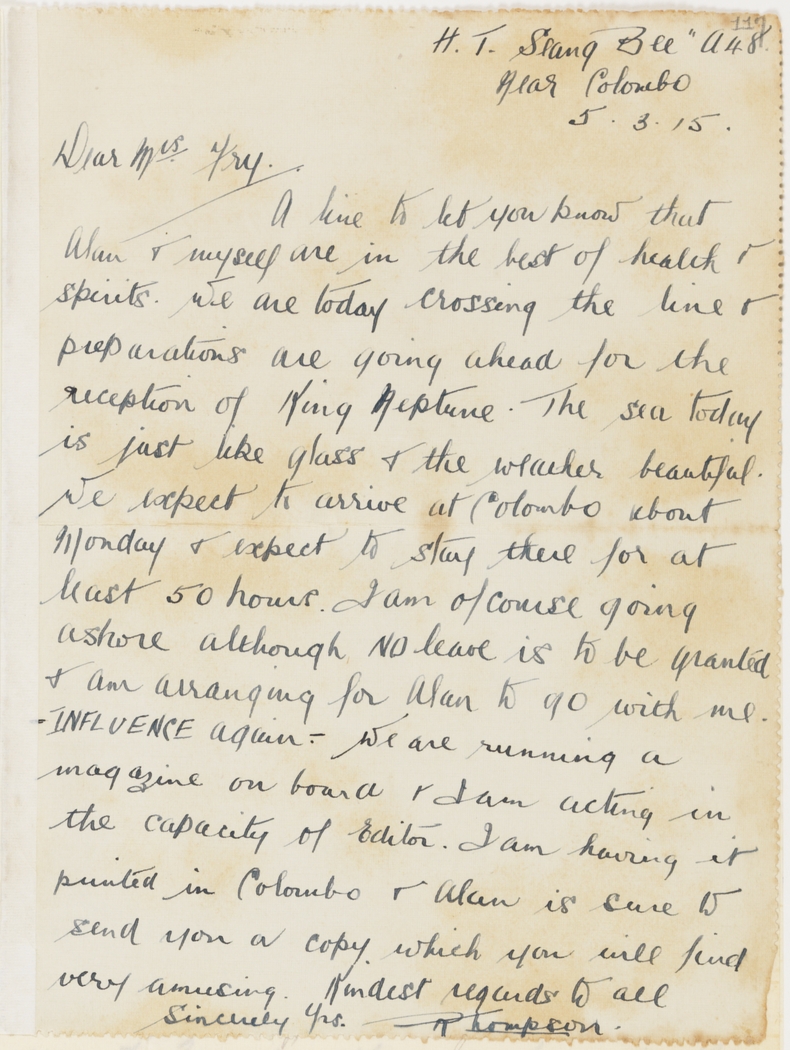 117
H. T. Seang Bee" A48.
Near Colombo
5. 3. 15.
Dear Mrs Fry.
A line to let you know that
Alan & myself are in the best of health &
spirits. We are today crossing the line &
preparations are going ahead for the
reception of King Neptune. The sea today
is just like glass & the weather beautiful.
We expect to arrive at Colombo about
Monday & expect to stay there for at
least 50 hours. I am of course going
ashore although NO leave is to be granted
& am arranging for Alan to go with me.
-INFLUENCE again- We are running a
magazine on board & I am acting in
the capacity of Editor. I am having it
printed in Colombo & Alan is sure to
send you a copy which you will find
very amusing. Kindest regards to all
Sincerely Yrs. Thompson.